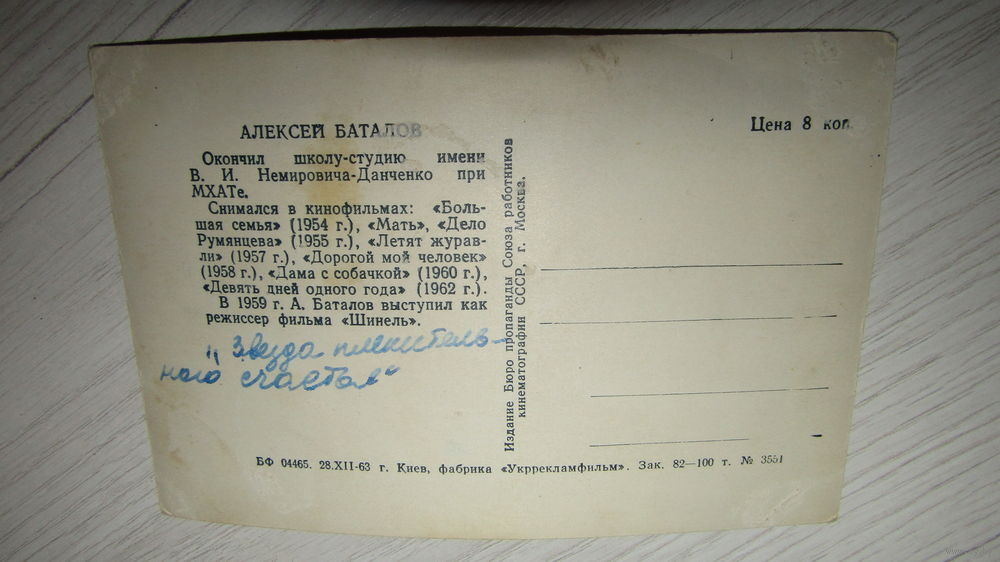 АЛЕКСЕЙ БАТАЛОВ
Окончил школу-студию имени
В. И. Немировича-Данченко при
МХАТе.
Снимался в кинофильмах: «Боль-
шая семья» (1954 г.), «Мать», «Дело
Румянцева» (1955 г.), «Летят журав-
ли» (1957 г.), «Дорогой мой человек»
(1958 г.), «Дама с собачкой» (1960 г.),
«Девять дней одного года» (1962 г.).
В 1959 г. А. Баталов выступил как
режиссер фильма «Шинель».
„Звезда пленитель-
ного счастья“
Издание Бюро пропаганды Союза работников
кинематографии СССР, г. Москва.
Цена 8 коп.
БФ 04465. 28.XII-63 г. Киев, фабрика «Укррекламфильм». Зак. 82—100 т. № 3551